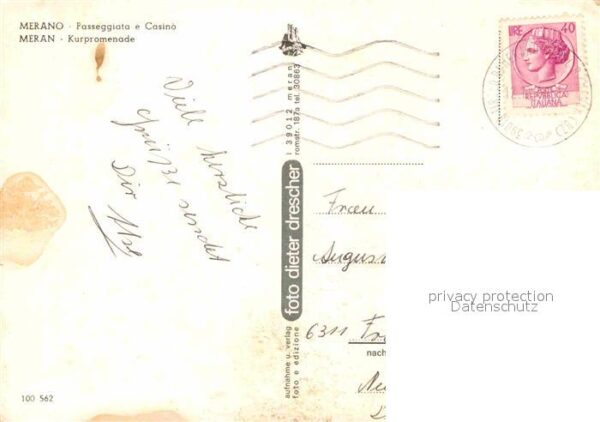 MERANO · Passeggiata e Casinò
MERAN · Kurpromenade
Viele herzliche
Grüße sendet
Dir
I 39012 meran
romstr. 187a tel. 30863
foto dieter drescher
aufnahme u. verlag
foto e edizione
LIRE 40
REPUBBLICA
ITALIANA
Frau
August
6311
nach
privacy protection
Datenschutz
100 562